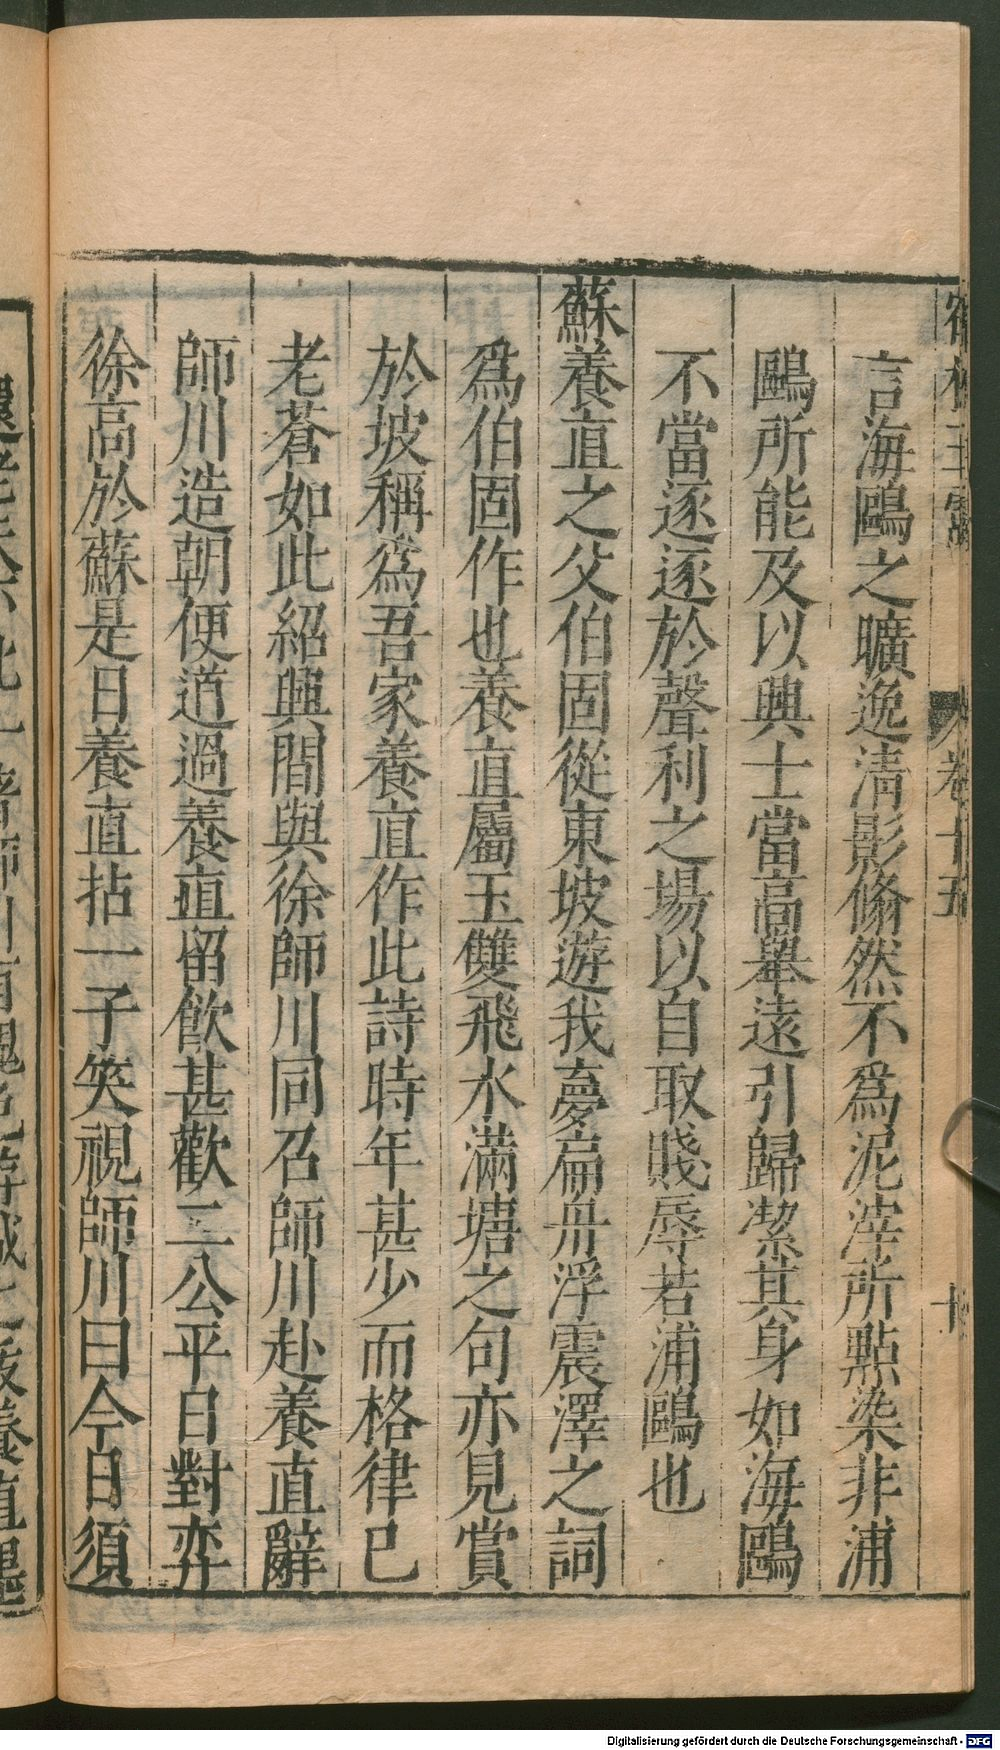 卷十五
十
言海鷗之曠逸清影翛然不爲泥滓所點染非浦
鷗所能及以興士當高舉遠引歸潔其身如海鷗
不當逐逐於聲利之場以自取賤辱若浦鷗也
蘇養直之父伯固從東坡遊我夢扁舟浮震澤之詞
爲伯固作也養直屬玉雙飛水滿塘之句亦見賞
於坡稱爲吾家養直作此詩時年甚少而格律已
老蒼如此紹興間與徐師川同召師川赴養直辭
師川造朝便道過養直留飲甚歡二公平日對弈
徐高於蘇是日養直拈一子笑視師川曰今日須
Digitalisierung gefördert durch die Deutsche Forschungsgemeinschaft - DFG